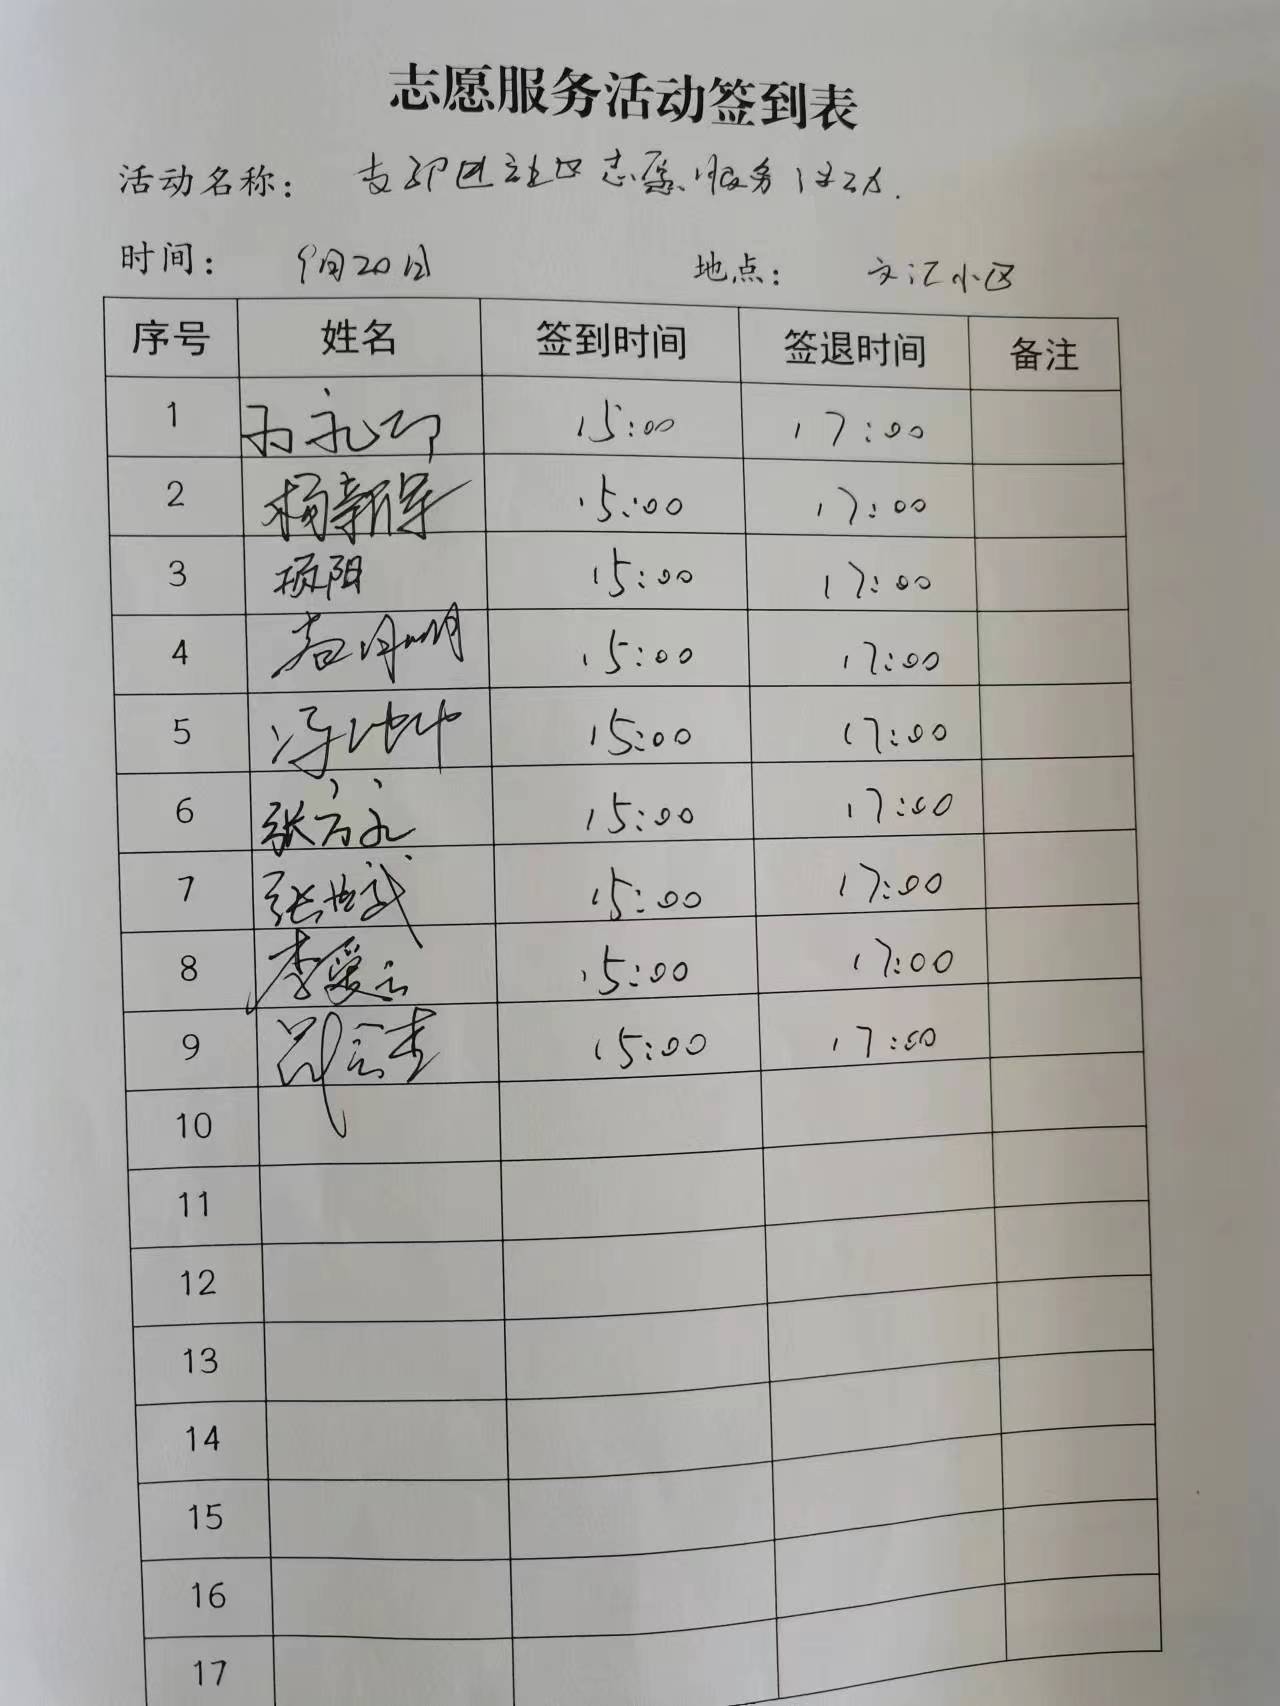 志愿服务活动签到表
活动名称： 支部进社区志愿服务活动.
时间： 9月20日 地点： 文汇小区
序号 姓名 签到时间 签退时间 备注
1 15:00 17:00
2 杨新军 15:00 17:00
3 项阳 15:00 17:00
4 15:00 17:00
5 冯 15:00 17:00
6 张方礼 15:00 17:00
7 张世武 15:00 17:00
8 李爱云 15:00 17:00
9 15:00 17:00
10
11
12
13
14
15
16
17